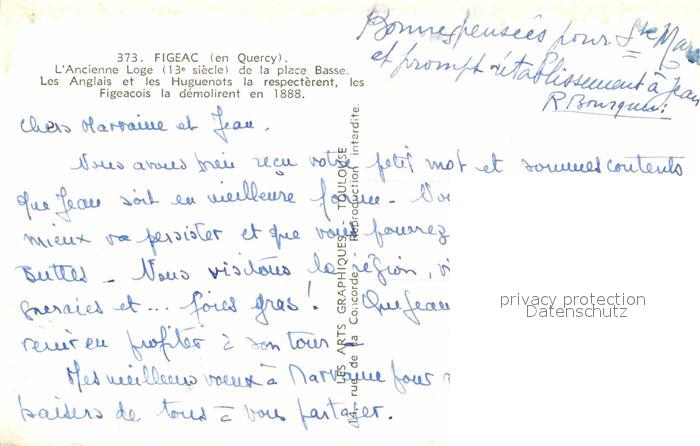 373. FIGEAC (en Quercy).
L'Ancienne Loge (13e siècle) de la place Basse.
Les Anglais et les Huguenots la respectèrent, les
Figeacois la démolirent en 1888.
Bonnes pensées pour Ste Mar
et prompt rétablissement à Jean
R. Bourquin
LES ARTS GRAPHIQUES, TOULOUSE
14, rue de la Concorde. Reproduction interdite.
chers Marraine et Jean,
Nous avons bien reçu votre petit mot et sommes contents
que Jean soit en meilleure forme -
mieux va persister et que vous pourrez
Buttes - Nous visitons la région,
et ... foies gras ! Que Jean
venir en profiter à son tour -
Mes meilleurs voeux à Marraine pour
baisers de tous à vous partager.
privacy protection
Datenschutz